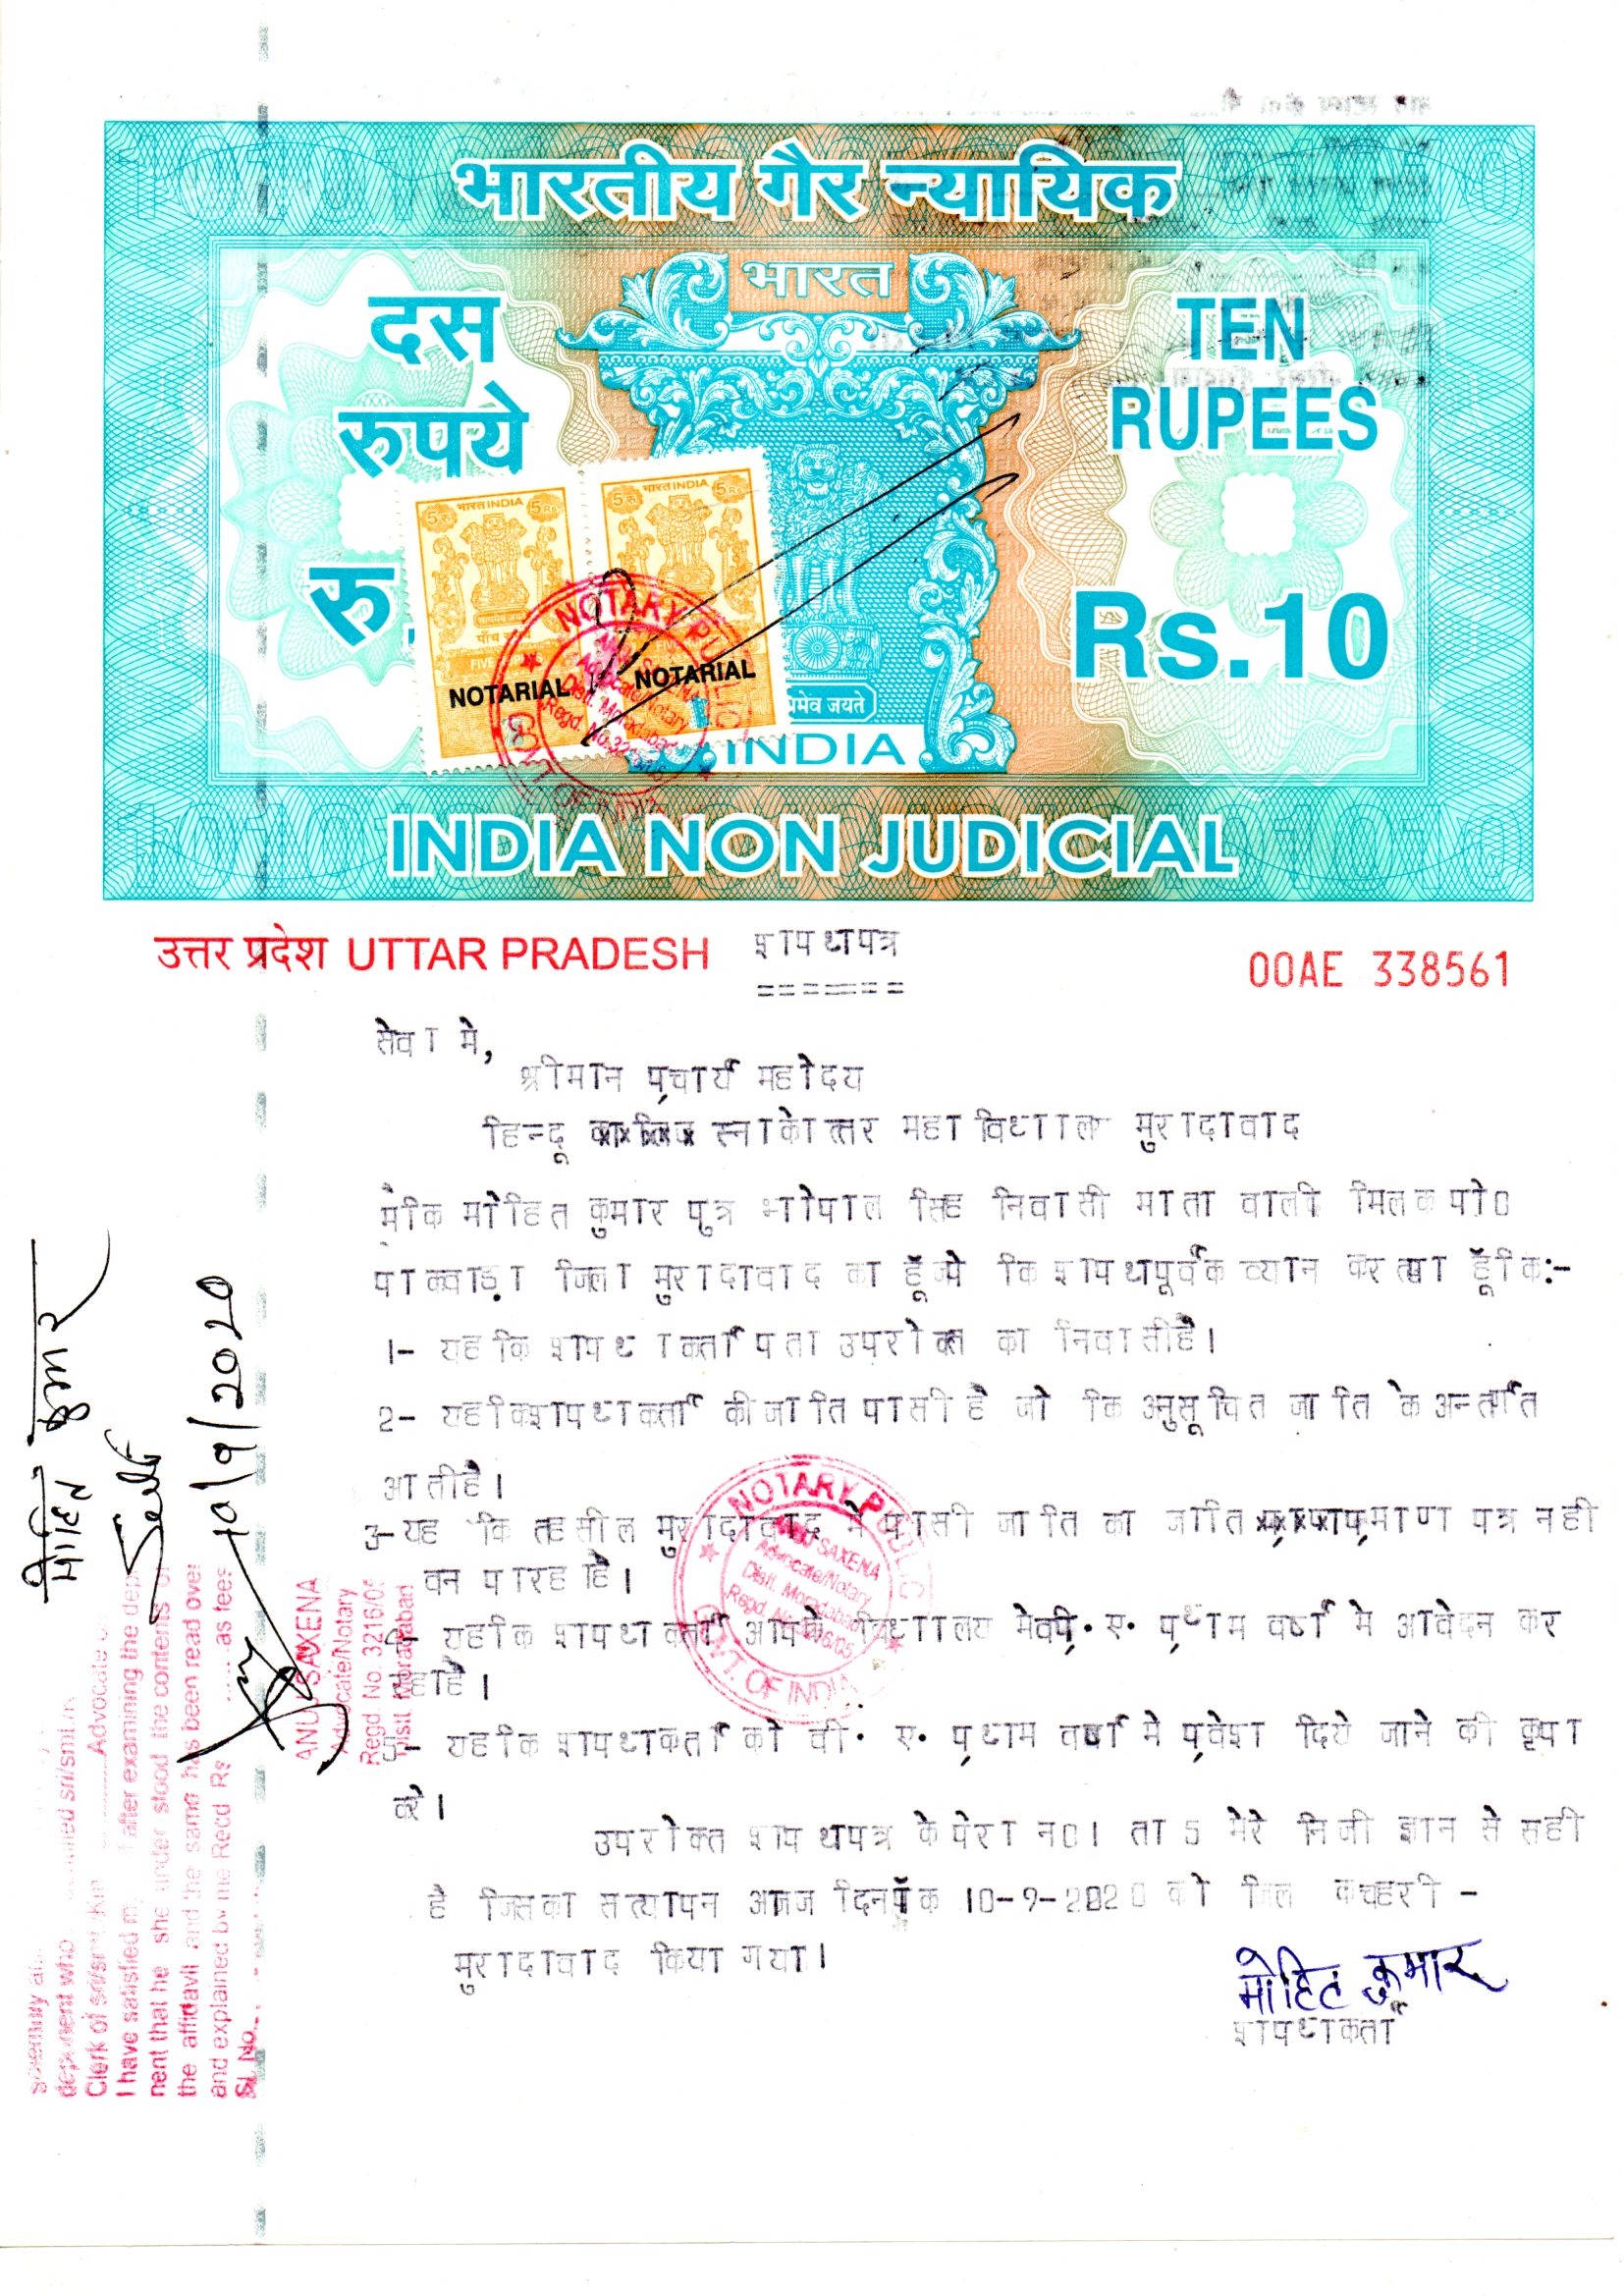 भारतीय गैर न्यायिक
भारत
दस
रुपये
TEN
RUPEES
रु.
Rs.10
5 रु. भारत INDIA 5 Rs.
5 रु. भारत INDIA 5 Rs.
NOTARIAL
NOTARIAL
INDIA
INDIA NON JUDICIAL
उत्तर प्रदेश UTTAR PRADESH
शपथपत्र
00AE 338561
=======
सेवा मे,
श्रीमान प्रचार्य महोदय
हिन्दू स्नाकोत्तर महाविधालय मुरादावाद
मैकि मोहित कुमार पुत्र भोपाल सिंह निवासी माता वाली मिलक पो0
पाकवाड़ा जिला मुरादावाद का हूँ कि शपथपूर्वक व्यान करता हूँकि:-
1- यहकि शपथकर्ता पता उपरोक्त का निवासीहै।
2- यहकिशपथकर्ता की जाति पासी है जो कि अनुसूचित जाति के अन्तर्गत
आतीहै।
3-यह कि तहसील मुरादावाद मे पासी जाति का जाति प्रमाण पत्र नही
वन पारहाहै।
4- यहकि शपथकर्ता आपके विधालय मेवी. ए. प्रथम वर्ष मे आवेदन कर
रहाहै।
5- यहकि शपथकर्ता को वी. ए. प्रथम वर्ष मे प्रवेश दिये जाने की कृपा
करे।
उपरोक्त शपथपत्र के पेरा न01 ता 5 मेरे निजी ज्ञान से सही
है जिसका सत्यापन आज दिनाँक 10-9-2020 को जिला कचहरी -
मुरादावाद किया गया।
मोहित कुमार
शपथकर्ता
NOTARY PUBLIC
ANUJ SAXENA
Advocate/Notary
Distt. Moradabad
Regd. No. 3216/05
GOVT. OF INDIA
मोहित कुमार
Self
10/9/2020
ANUJ SAXENA
Advocate/Notary
Regd No. 3216/05
Distt Moradabad
deponent who
Clerk of Advocate
I have satisfied after examining the
nent that he she under stood the contents of
the affidavit and the same has been read over
and explained by me Recd Rs as fees
Sl. No.